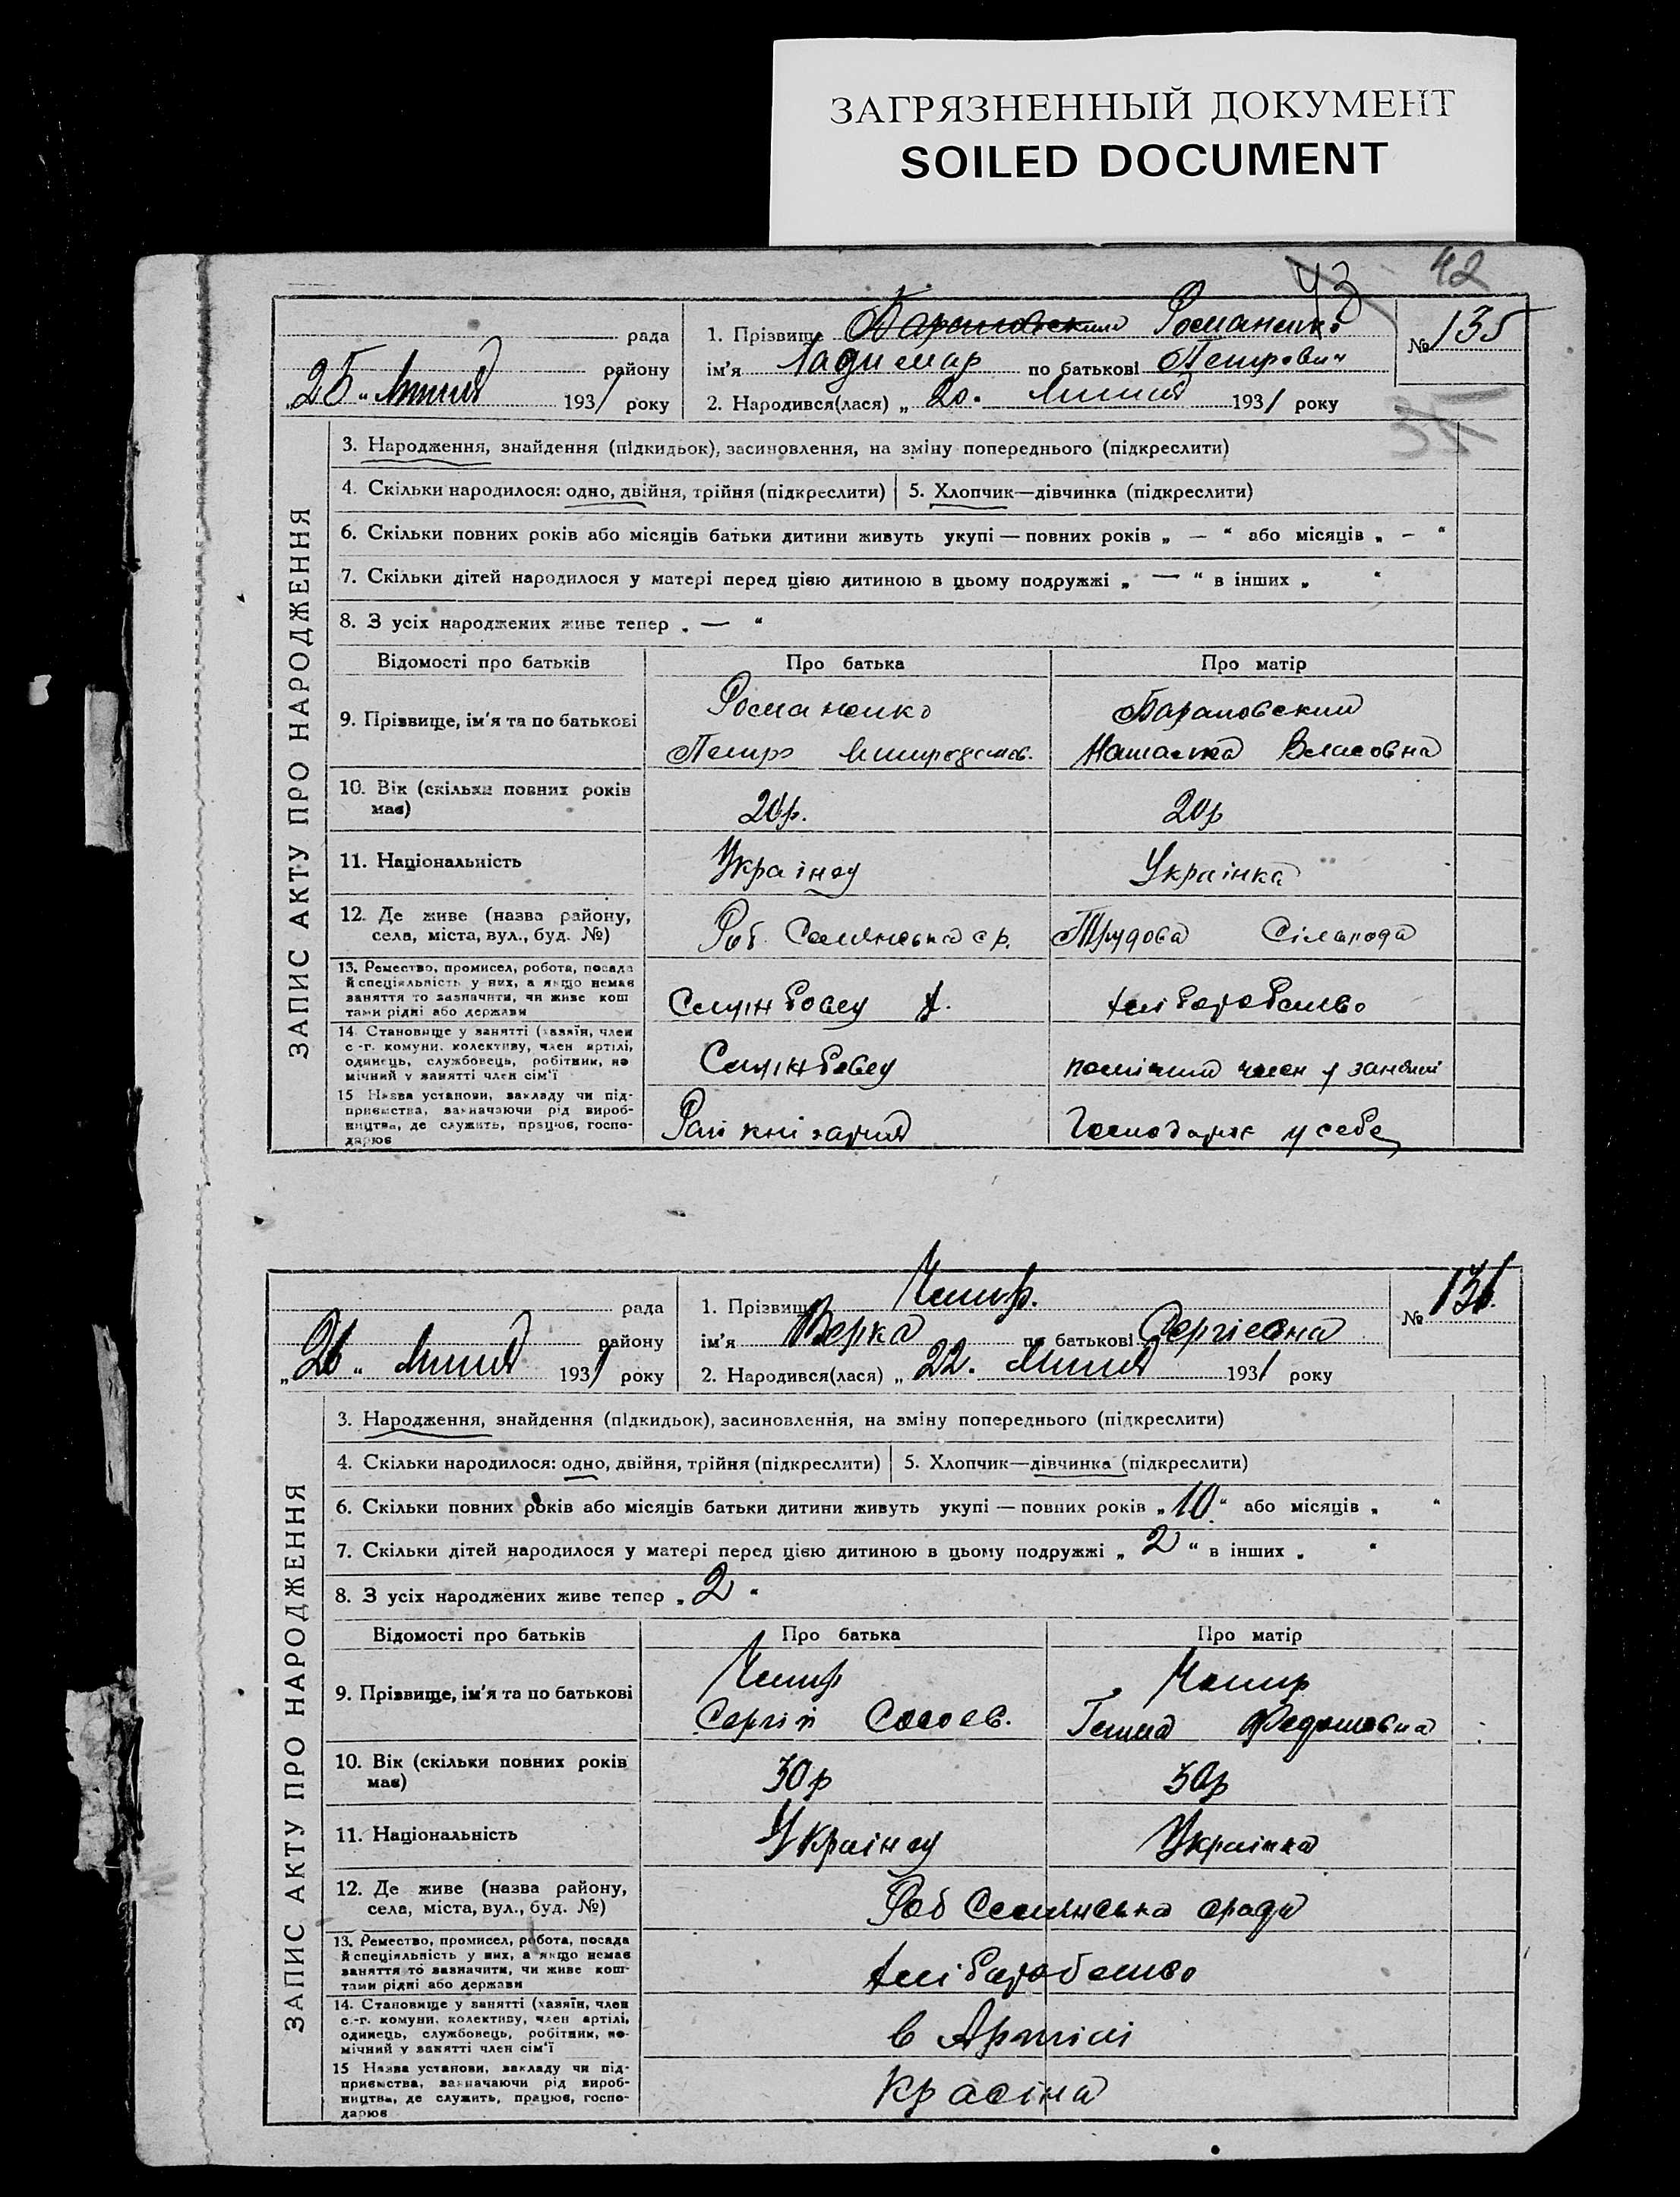 ЗАГРЯЗНЕННЫЙ ДОКУМЕНТ
SOILED DOCUMENT
43 42
рада
району
„25“ Липня 1931 року
1. Прізвище Барановський Романенко
ім'я Ладимар по батькові Петрович
2. Народився(лася) „20. Липня 1931 року
№ 135
ЗАПИС АКТУ ПРО НАРОДЖЕННЯ
3. Народження, знайдення (підкидьок), засиновлення, на зміну попереднього (підкреслити)
4. Скільки народилося: одно, двійня, трійня (підкреслити) 5. Хлопчик—дівчинка (підкреслити)
6. Скільки повних років або місяців батьки дитини живуть укупі — повних років „ — “ або місяців „ — “
7. Скільки дітей народилося у матері перед цією дитиною в цьому подружжі „ — “ в інших „ “
8. З усіх народжених живе тепер „ — “
Відомості про батьків Про батька Про матір
9. Прізвище, ім'я та по батькові
Романенко
Петро
Барановський
Наталка Власовна
10. Вік (скільки повних років
має)
20р. 20р
11. Національність Українец Українка
12. Де живе (назва району,
села, міста, вул., буд. №)
Роб. Селянська с р. Трудова Сільрода
13. Ремество, промисел, робота, посада
й спеціяльність у них, а якщо немає
заняття то зазначити, чи живе кош
тами рідні або держави
хліборобство
14. Становище у занятті (хазяїн, член
с.-г. комуни, колективу, член артілі,
одинець, службовець, робітник, по
мічний у занятті член сім'ї
помічний член у занятті
15 Назва установи, закладу чи під-
приємства, зазначаючи рід вироб-
ництва, де служить, працює, госпо-
дарює
Рай кнігарня Господарює у себе
рада
району
„26“ Липня 1931 року
1. Прізвище
ім'я Верка по батькові Сергієвна
2. Народився(лася) „22. Липня 1931 року
№ 136.
ЗАПИС АКТУ ПРО НАРОДЖЕННЯ
3. Народження, знайдення (підкидьок), засиновлення, на зміну попереднього (підкреслити)
4. Скільки народилося: одно, двійня, трійня (підкреслити) 5. Хлопчик—дівчинка (підкреслити)
6. Скільки повних років або місяців батьки дитини живуть укупі — повних років „10“ або місяців „ “
7. Скільки дітей народилося у матері перед цією дитиною в цьому подружжі „2“ в інших „ “
8. З усіх народжених живе тепер „2“
Відомості про батьків Про батька Про матір
9. Прізвище, ім'я та по батькові
Сергій
10. Вік (скільки повних років
має)
30р 30р
11. Національність Українец Українка
12. Де живе (назва району,
села, міста, вул., буд. №)
Роб Селянська срада
13. Ремество, промисел, робота, посада
й спеціяльність у них, а якщо немає
заняття то зазначити, чи живе кош-
тами рідні або держави
хліборобство
14. Становище у занятті (хазяїн, член
с.-г. комуни, колективу, член артілі,
одинець, службовець, робітник, по-
мічний у занятті член сім'ї
в Артілі
15 Назва установи, закладу чи під-
приємства, зазначаючи рід вироб-
ництва, де служить, працює, госпо-
дарює
Красіна